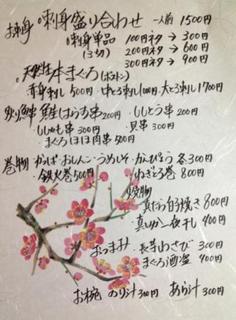 お刺身 刺身盛り合わせ 一人前 1500円
刺身単品 100円ネタ → 300円
(3切) 200円ネタ → 600円
300円ネタ → 900円
天然生本まぐろ
赤身刺し 500円 中とろ刺し 1100円 大とろ刺し 1700円
鮭はらす串 200円 ・ししとう串 200円
ししゃも串 300円 ・貝串 300円
まぐろほほ肉串 500円
巻物 かっぱ おしんこ うめしそ かんぴょう 各300円
・鉄火巻 500円 ねぎとろ巻 800円
焼物
真だち白子焼き 800円
真いか一夜干し 700円
おつまみ ・長芋わさび 300円
まぐろ酒盗 400円
お椀 のり汁 300円 あら汁 300円